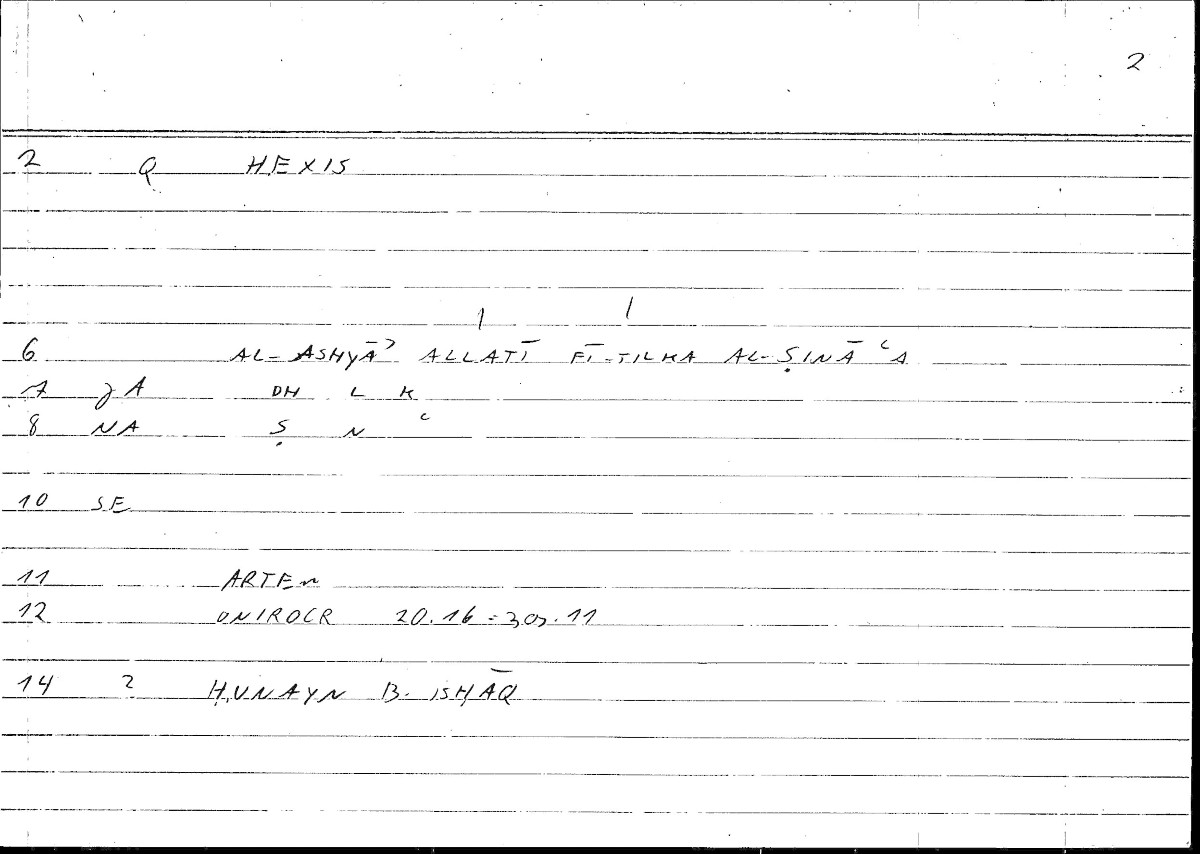 2
2 Q HEXIS
6 AL-ASHYĀʾ ALLATĪ FĪ-TILKA AL-ṢINĀʿA
7 JA DH L K
8 NA Ṣ N ʿ
10 SE
11 ARTEM
12 ONIROCR 20.16 =
14 2 ḤUNAYN B. ISḤĀQ